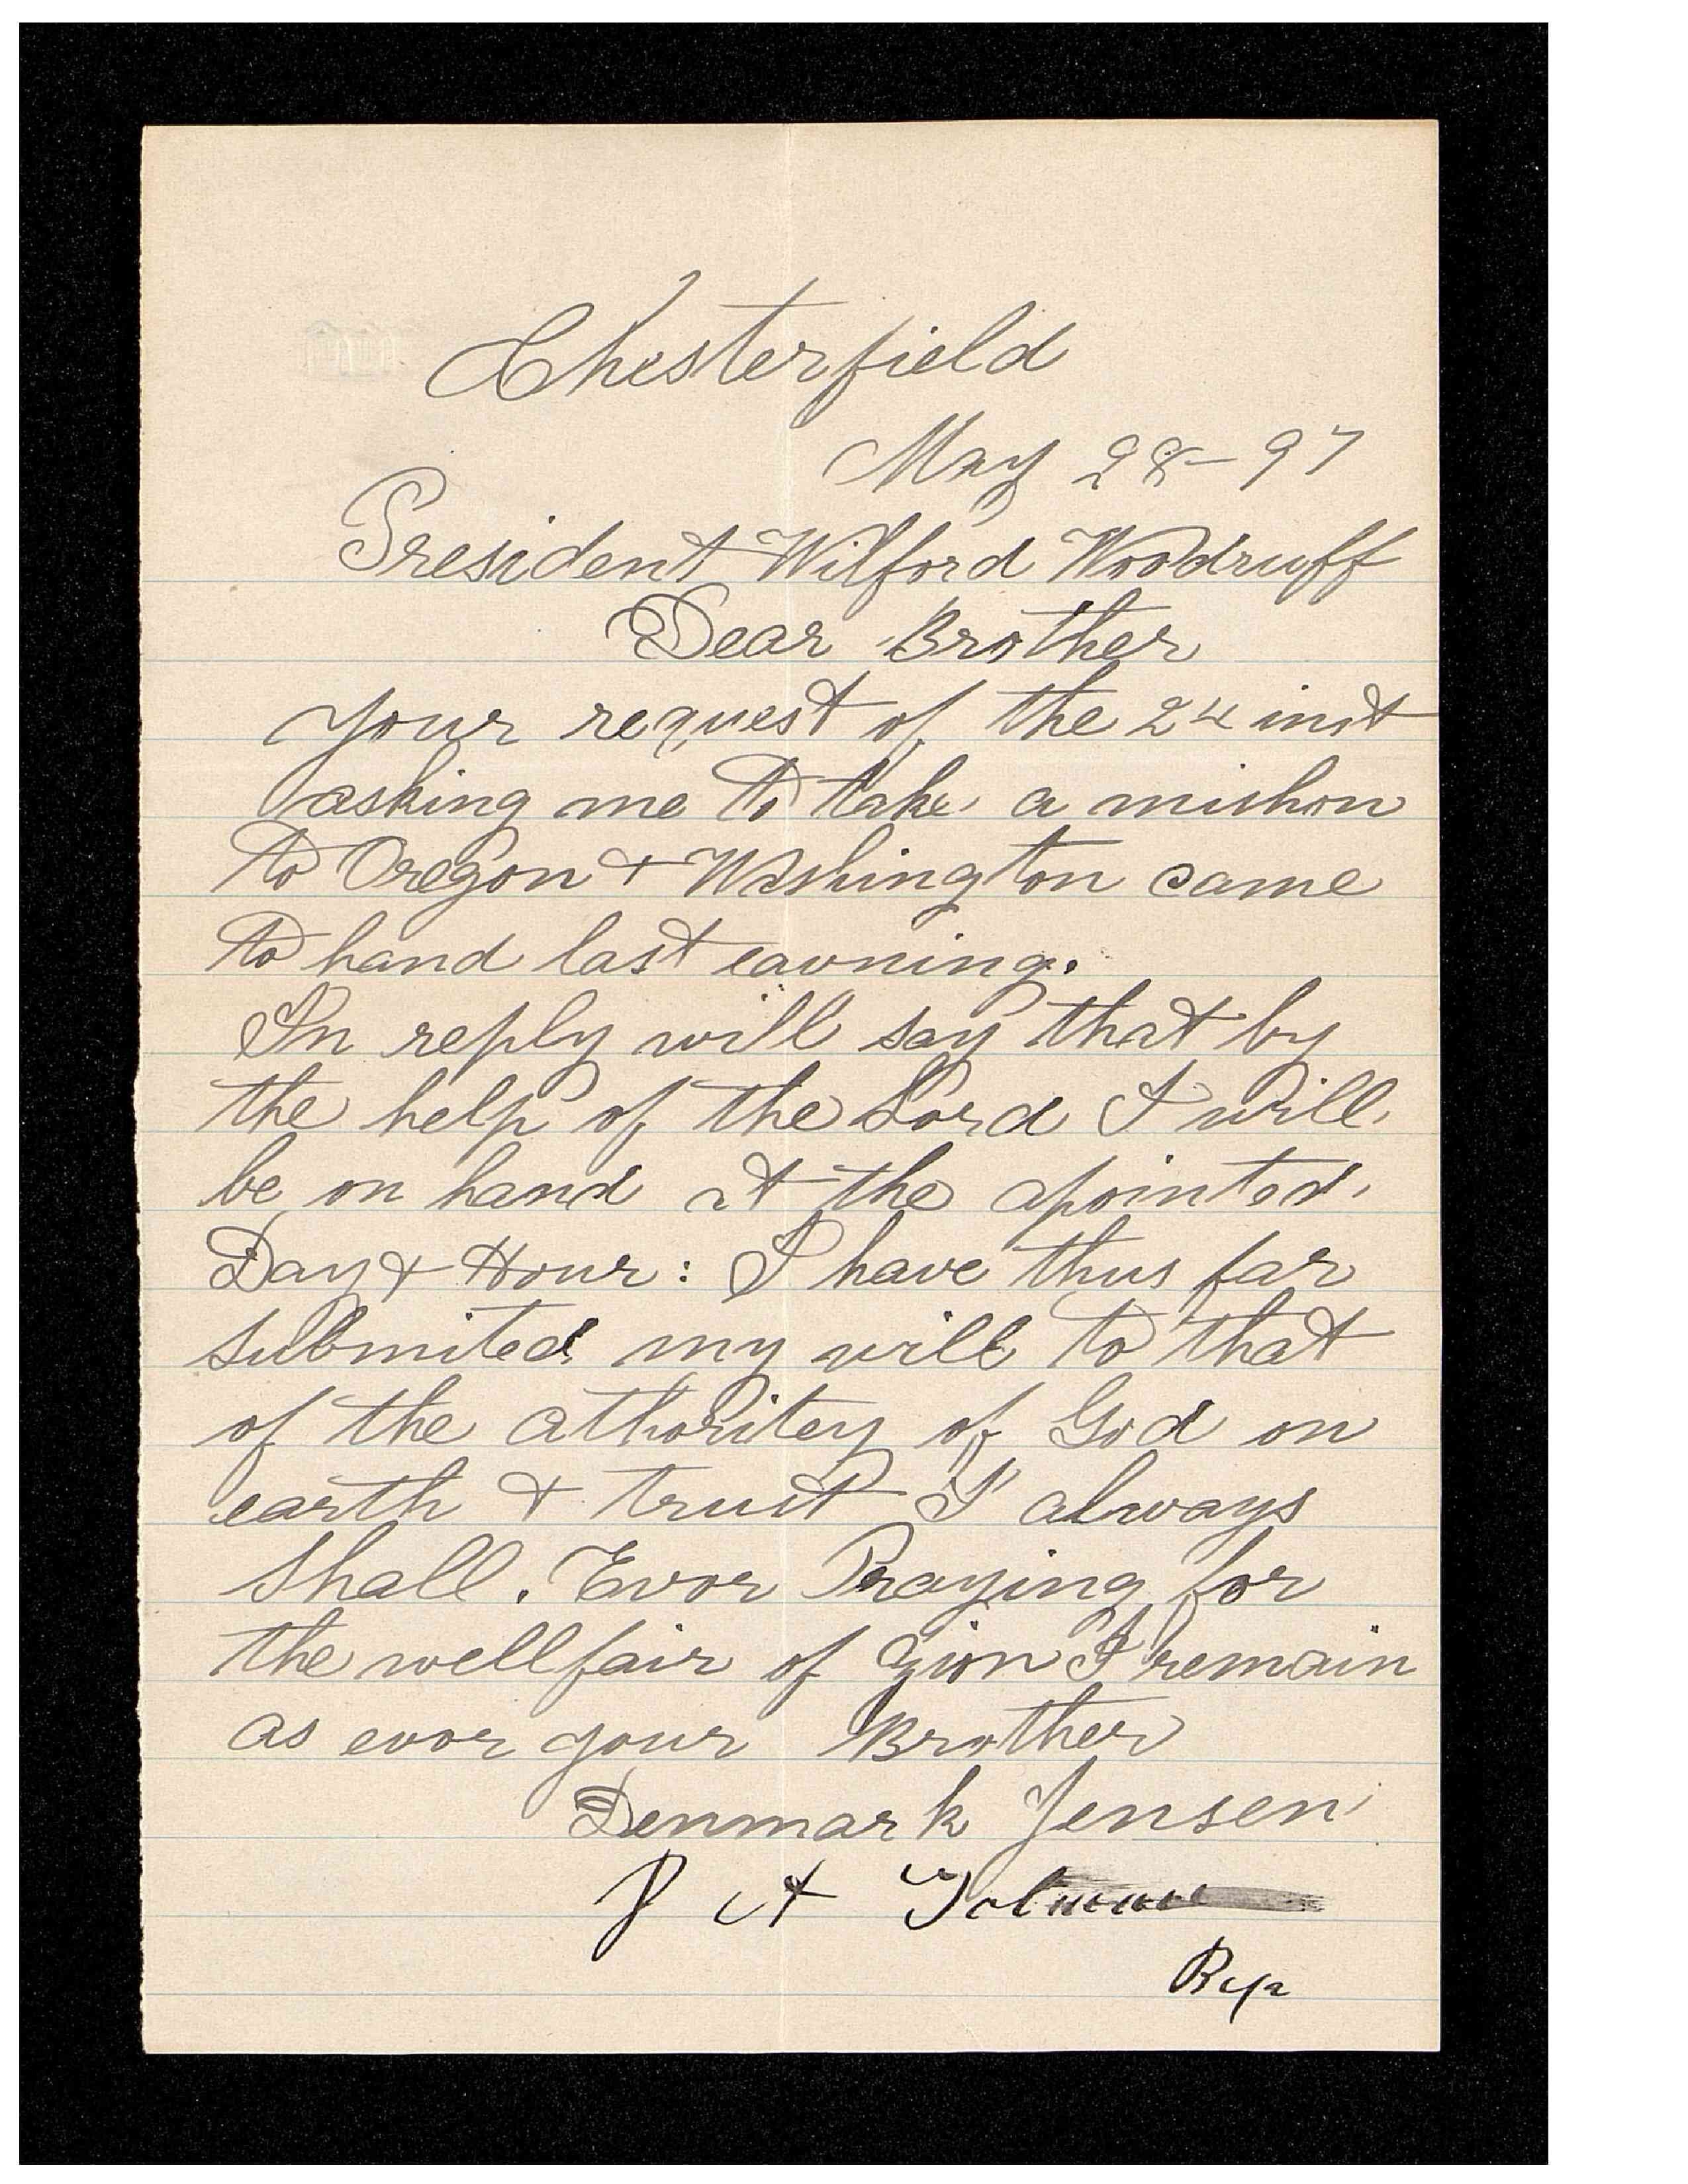 Chesterfield
May 28-97
President Wilford Woodruff
Dear Brother
your request of the 24 inst
asking me to take a mishon
to Oregon & Washington came
to hand last eavning.
In reply will say that by
the help of the Lord I will
be on hand at the apointed
Day & Hour: I have thus far
submited my will to that
of the athoritey of God on
earth & trust I always
shall. Evor Praying for
the wellfair of Zion I remain
as evor your Brother
Denmark Jensen
J A Tolman
Bp